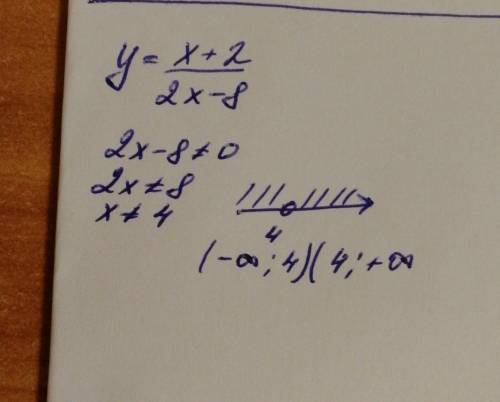 y = x+2 / 2x-8
2x-8≠0
2x≠8
x≠4
4
(-∞;4)(4;+∞